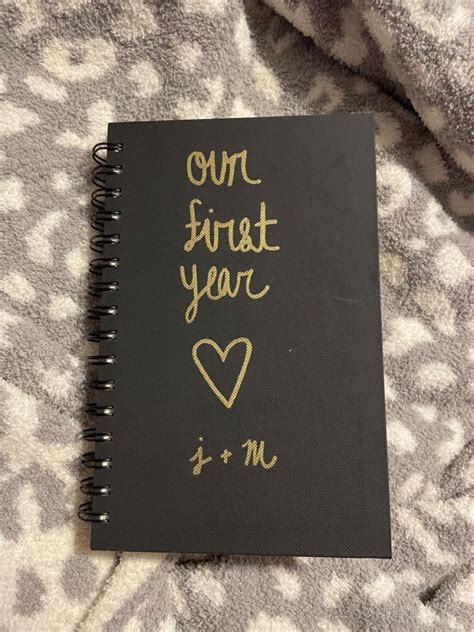 our
first
year
j + M